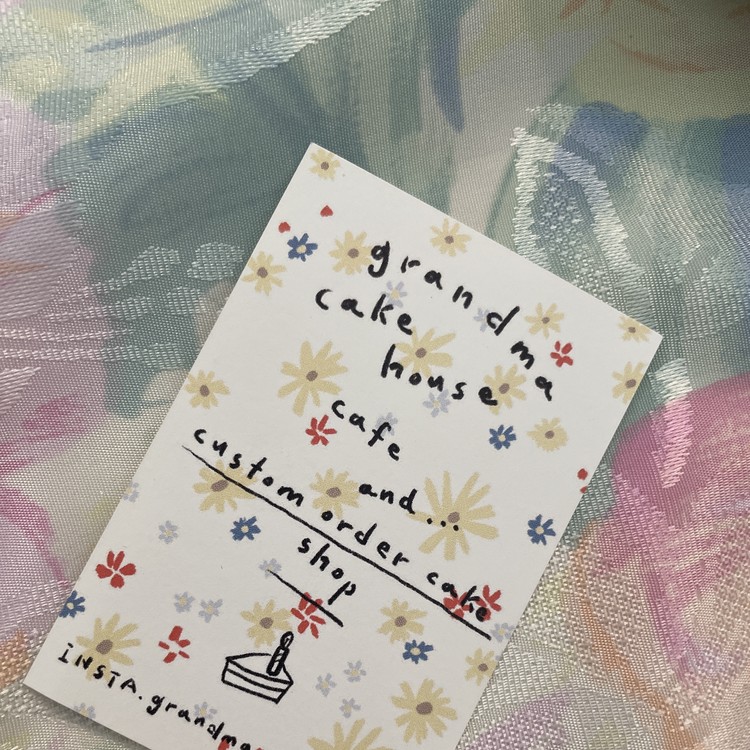 grandma
cake
house
cafe
and...
custom order cake
shop
INSTA. grandma